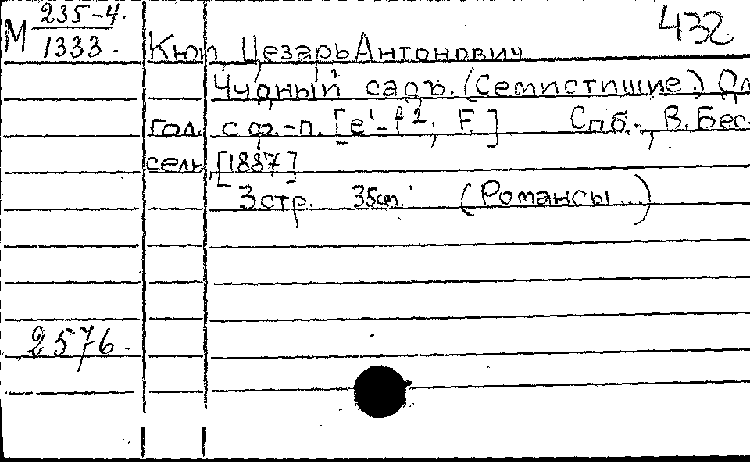 М 235-4.
1333.
432
Кюи, Цезарь Антонович
Чудный садъ. (Семистишие.) Дл
гол. с ф.-п. [e¹-f², F.] Спб., В. Бес-
сель, [1887]
3 стр. 35cm. (Романсы...)
2576.